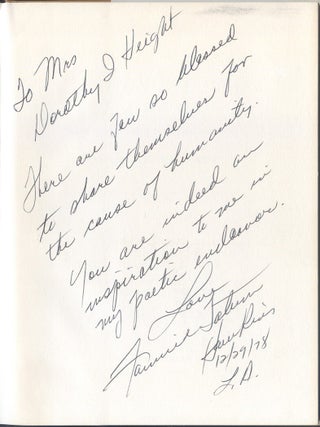 To Mrs
Dorothy I Height
There are few so blessed
to share themselves for
the cause of humanity.
You are indeed an
inspiration to me in
my poetic endeavor.
Love
12/29/78
L.A.